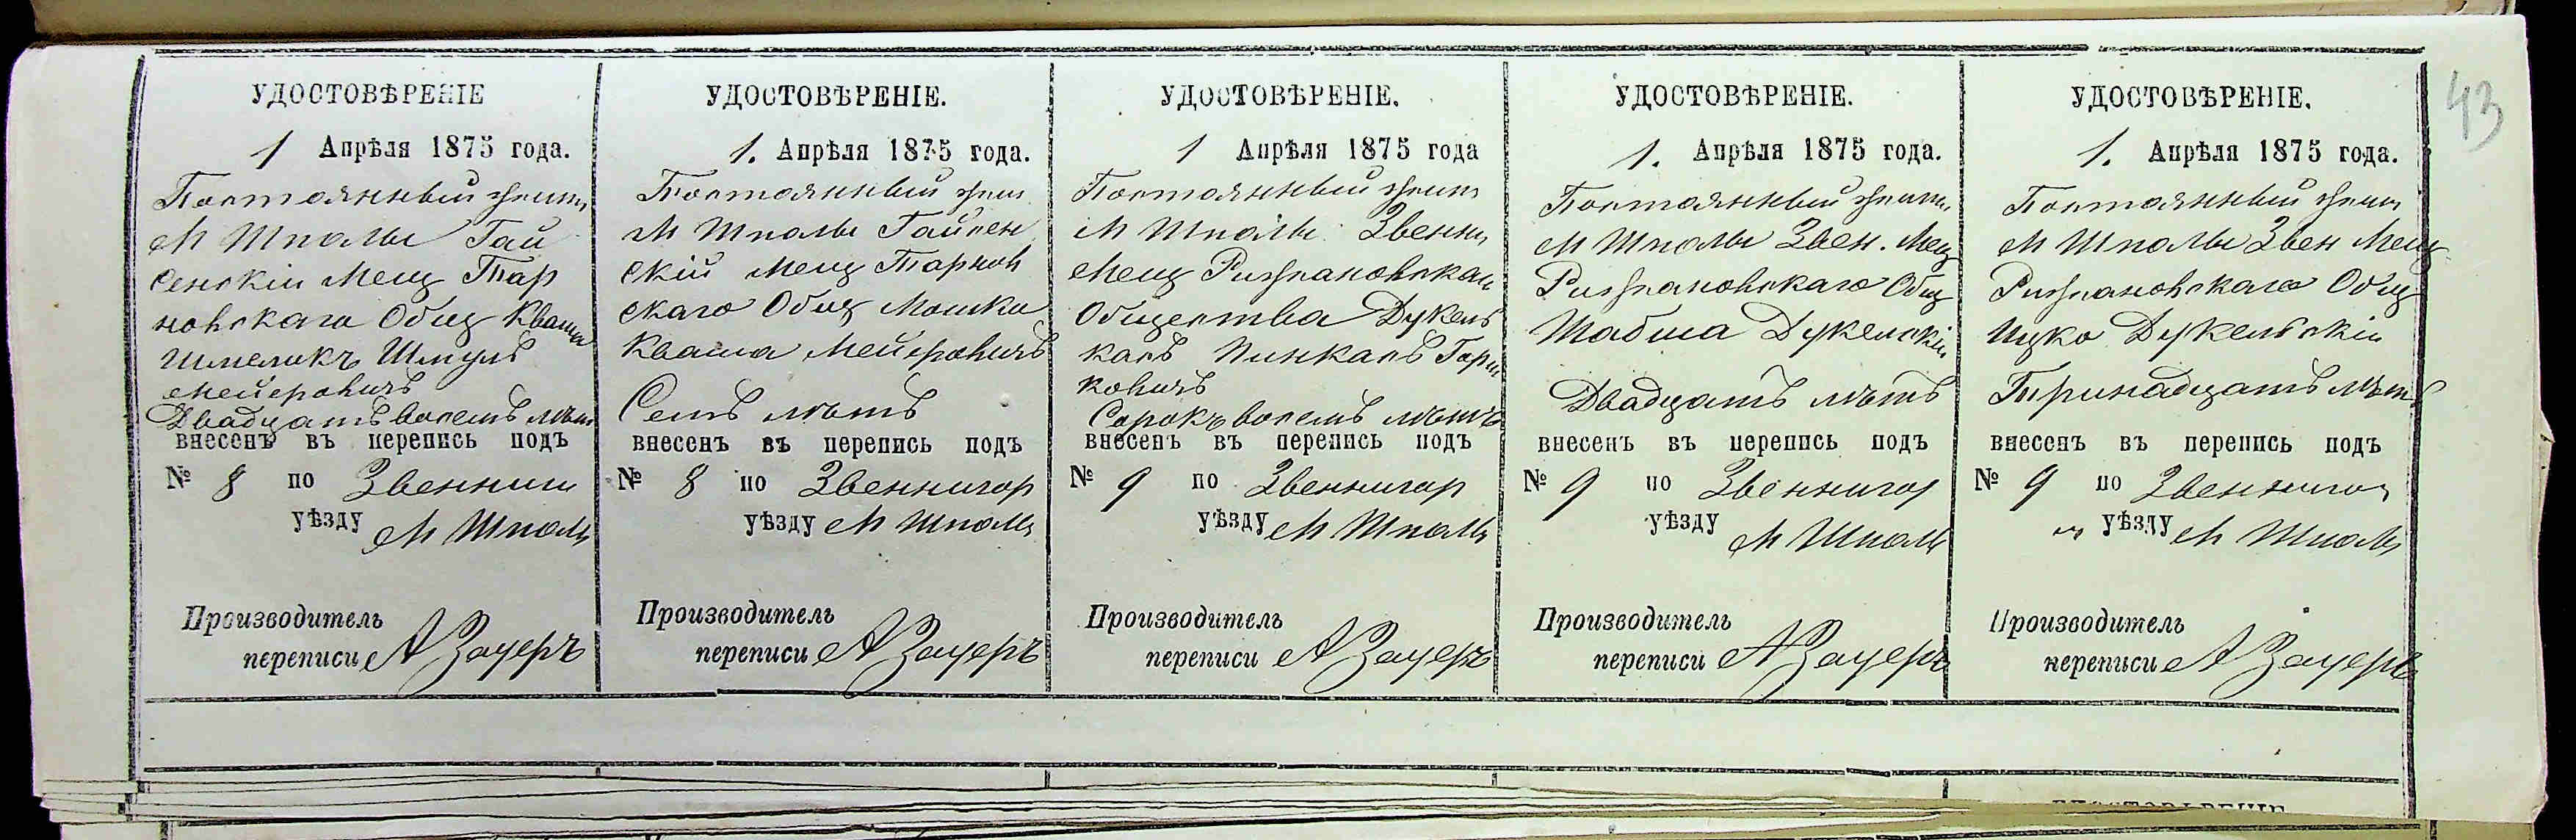 43
УДОСТОВѢРЕНІЕ
1 Апрѣля 1875 года.
Постоянный жит
М Шполы Гай
сенскій Мещ Тар
новскаго Общ Кваша
Шмеликъ Шмуль
Мейеровичъ
Двадцать восемь лѣтъ
внесенъ въ перепись подъ
№ 8 по Звенниг
уѣзду М Шполы
Производитель
переписи А Зауеръ
УДОСТОВѢРЕНІЕ.
1. Апрѣля 1875 года.
Постоянный жит
М Шполы Гайсен
скій Мещ Тарнов
скаго Общ Мошко
Кваша Мейеровичъ
Семь лѣтъ
внесенъ въ перепись подъ
№ 8 по Звеннигор
уѣзду М Шполы
Производитель
переписи А Зауеръ
УДОСТОВѢРЕНІЕ.
1 Апрѣля 1875 года
Постоянный жит
М Шполы Звенн
Мещ Ризановскаго
Общества Дукель
Пинкась
Сорокъ восемь лѣтъ
внесенъ въ перепись подъ
№ 9 по Звеннигор
уѣзду М Шполы
Производитель
переписи А Зауеръ
УДОСТОВѢРЕНІЕ.
1. Апрѣля 1875 года.
Постоянный жит
М Шполы Звен. Мещ
Ризановскаго Общ
Шабша Дукельскій
Двадцать лѣтъ
внесенъ въ перепись подъ
№ 9 по Звеннигор
уѣзду М Шполы
Производитель
переписи А Зауеръ
УДОСТОВѢРЕНІЕ.
1. Апрѣля 1875 года.
Постоянный жит
М Шполы Звен Мещ
Ризановскаго Общ
Ицко Дукельскій
Тринадцать лѣтъ
внесенъ въ перепись подъ
№ 9 по Звеннигор
уѣзду М Шполы
Производитель
переписи А Зауеръ